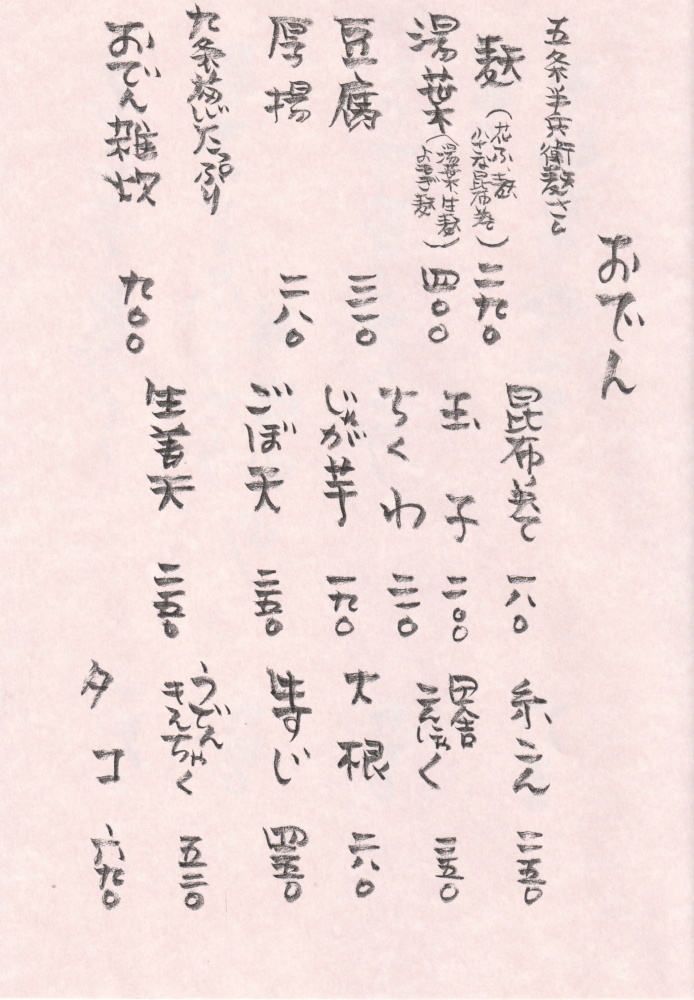 おでん
五条半兵衛麩さん
麩
(花ふ、麩
小さな昆布巻)
二九〇
湯葉
(湯葉、生麩
よもぎ麩)
四〇〇
豆腐
三一〇
厚揚
二八〇
九条葱たっぷり
おでん雑炊
九〇〇
昆布
一八〇
玉子
二〇〇
ちくわ
じゃが芋
一九〇
ごぼ天
二五〇
生姜天
二五〇
糸こん
二五〇
田舎
こんにゃく
二五〇
大根
二八〇
牛すじ
四五〇
うどん
きんちゃく
五二〇
タコ
六九〇